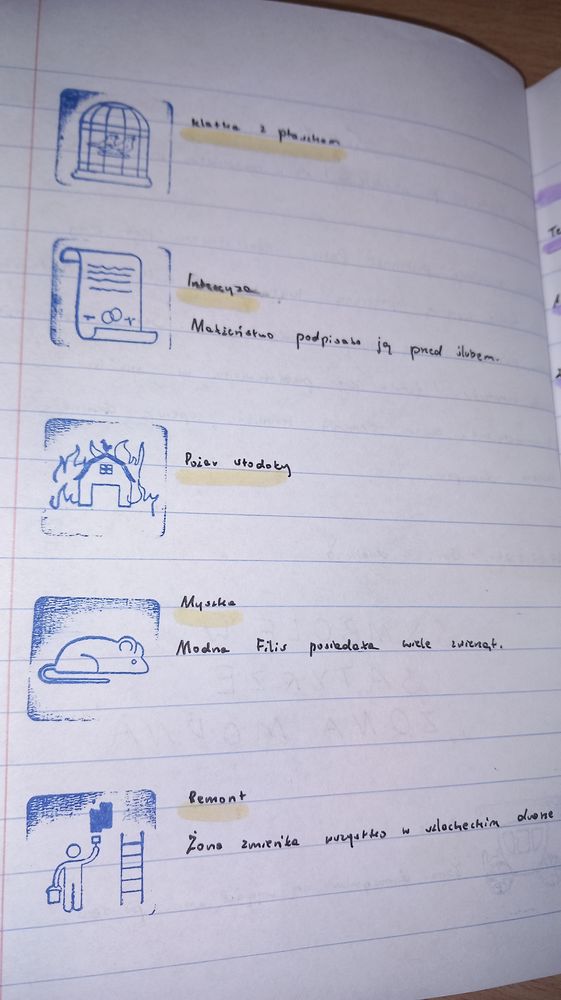 klatka z ptaszkiem
Intercyza
Małżeństwo podpisało ją przed ślubem.
Pożar stodoły
Myszka
Modna Filis posiadała wiele zwierząt.
Remont
Żona zmieniła wszystko w szlacheckim dworze
Te
SATYRZE
ŻONA MODNA